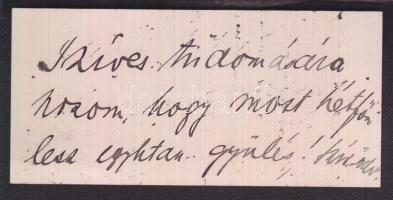 Szíves tudomására
hozom, hogy most hétfőn
lesz egyhtan. gyűlés!